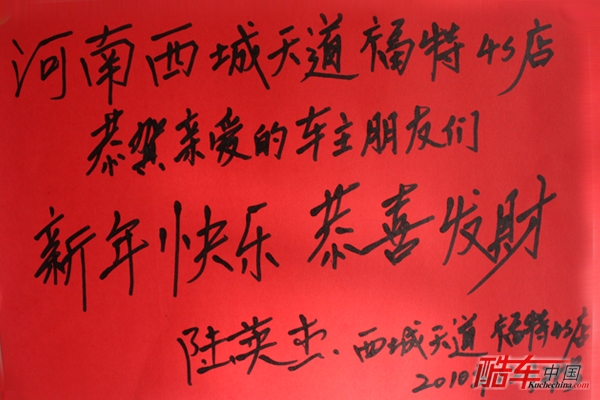 河南西城天道福特4S店
恭贺亲爱的车主朋友们
新年快乐 恭喜发财
陆英杰 西城天道 福特4S店
2010年
酷车中国
Kuchechina.com